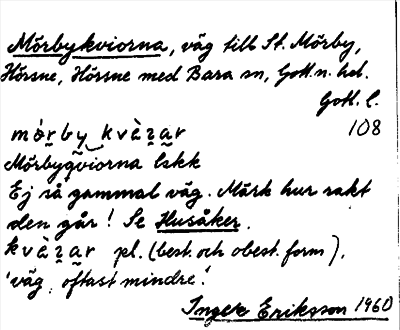 Mörbykviorna, väg till St. Mörby,
Hörsne, Hörsne med Bara sn, Gotl.n. hd.
Gotl. l.
108
mórby kvèzar
Mörbyqviorna lskk
Ej så gammal väg. Märk hur rakt
den går! Se Husåker.
kvèzar pl. (best. och obest. form).
'väg, oftast mindre.'
Inger Eriksson 1960